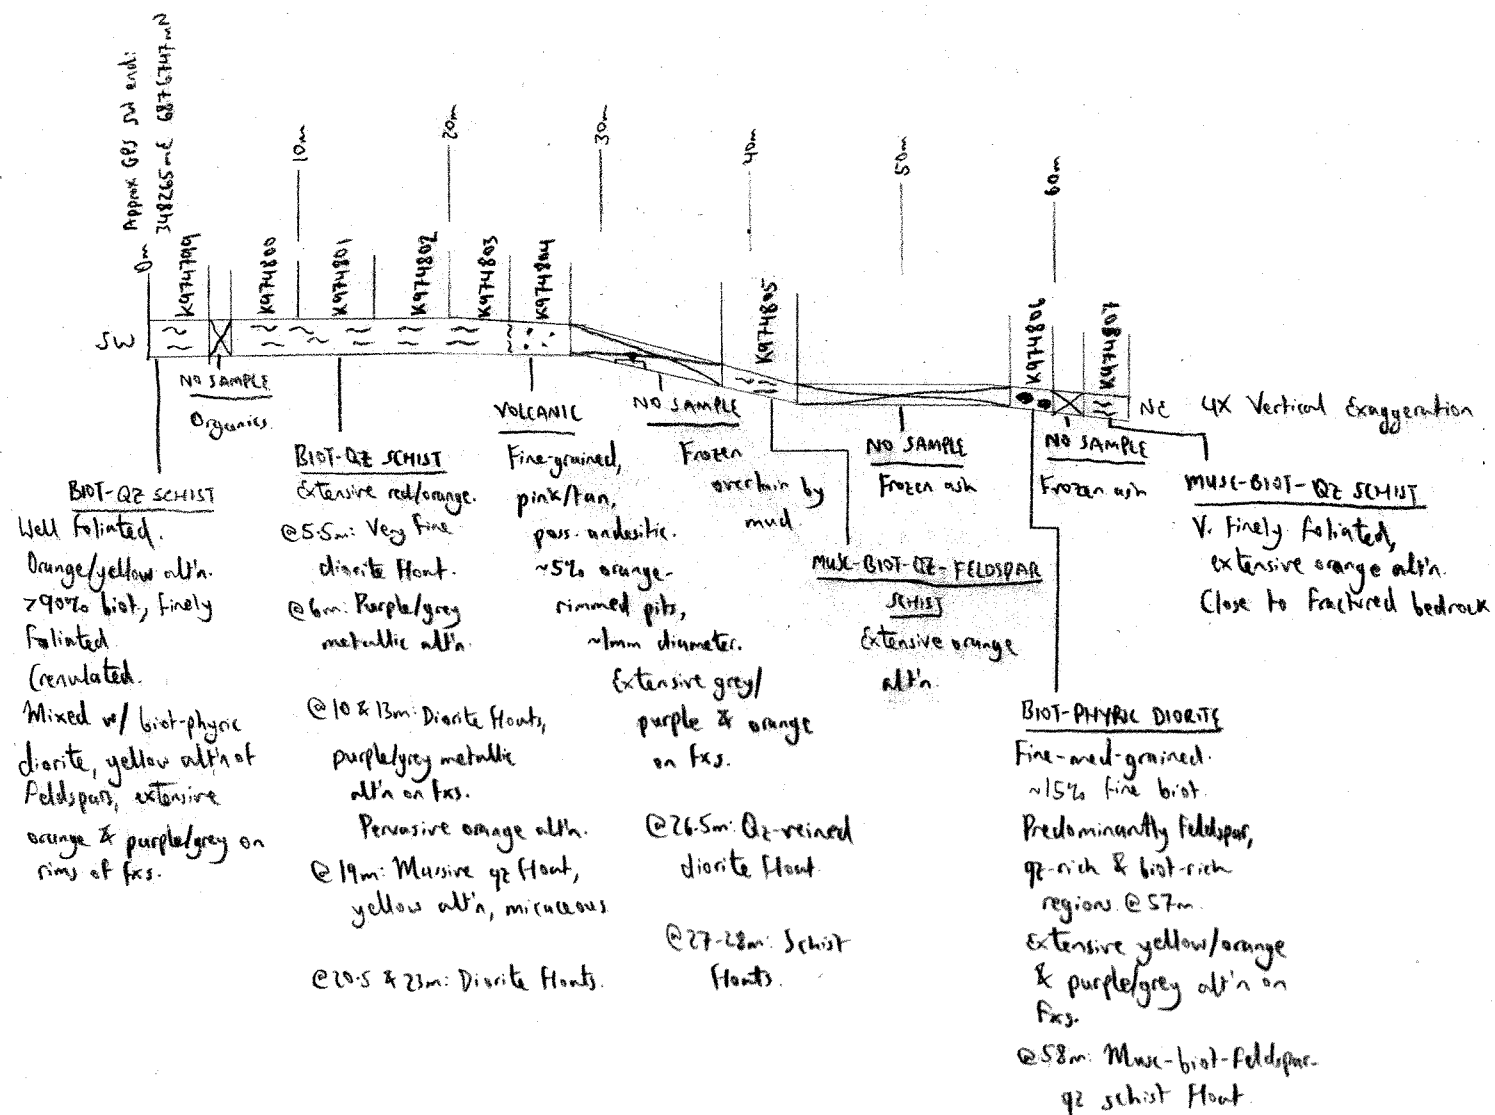 Approx GPS SW end:
348265mE 6876747mN
0m
10m
20m
30m
40m
50m
60m
K974799
K974800
K974801
K974802
K974803
K974804
K974805
K974806
K974807
SW
NE 4X Vertical Exaggeration
NO SAMPLE
Organics.
BIOT-QZ SCHIST
Well foliated.
Orange/yellow alt'n.
>90% biot, finely
foliated
Crenulated.
Mixed w/ biot-phyric
diorite, yellow alt'n of
feldspars, extensive
orange & purple/grey on
rims of fxs.
BIOT-QZ SCHIST
Extensive red/orange.
@5.5m: Very fine
diorite float.
@6m: Purple/grey
metallic alt'n.
@10 & 13m: Diorite floats,
purple/grey metallic
alt'n on fxs.
Pervasive orange alt'n.
@19m: Massive qz float,
yellow alt'n, micaceous
@20.5 & 23m: Diorite floats.
VOLCANIC
Fine-grained,
pink/tan,
poss. andesitic.
~5% orange-
rimmed pits,
~1mm diameter.
Extensive grey/
purple & orange
on fxs.
@26.5m: Qz-veined
diorite float.
@27-28m: Schist
floats.
NO SAMPLE
Frozen
overlain by
mud.
MUSC-BIOT-QZ-FELDSPAR
SCHIST
Extensive orange
alt'n.
NO SAMPLE
Frozen ash
BIOT-PHYRIC DIORITE
Fine-med-grained.
~15% fine biot.
Predominantly feldspar,
qz-rich & biot-rich
regions @57m.
Extensive yellow/orange
& purple/grey alt'n on
fxs.
@58m: Musc-biot-feldspar-
qz schist float.
NO SAMPLE
Frozen ash
MUSC-BIOT-QZ SCHIST
V. finely foliated,
extensive orange alt'n.
Close to fractured bedrock